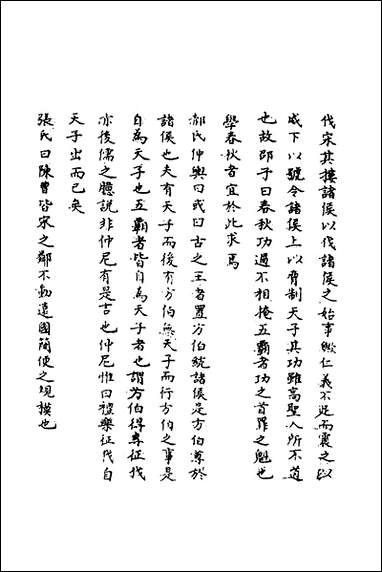 伐宋其摟諸侯以伐諸侯之始事歟仁義不足而震之以
威下以號令諸侯上以脅制天子其功雖高聖人所不道
也故邵子曰春秋功過不相掩五霸者功之首罪之魁也
學春秋者宜於此求焉
郝氏仲輿曰或曰古之王者置方伯統諸侯是方伯尊於
諸侯也夫有天子而後有方伯無天子而行方伯之事是
自為天子也五霸者皆自為天子者也謂方伯得專征伐
亦後儒之臆說非仲尼有是言也仲尼惟曰禮樂征伐自
天子出而已矣
張氏曰陳曹皆宋之鄰不勤遠國簡便之規模也